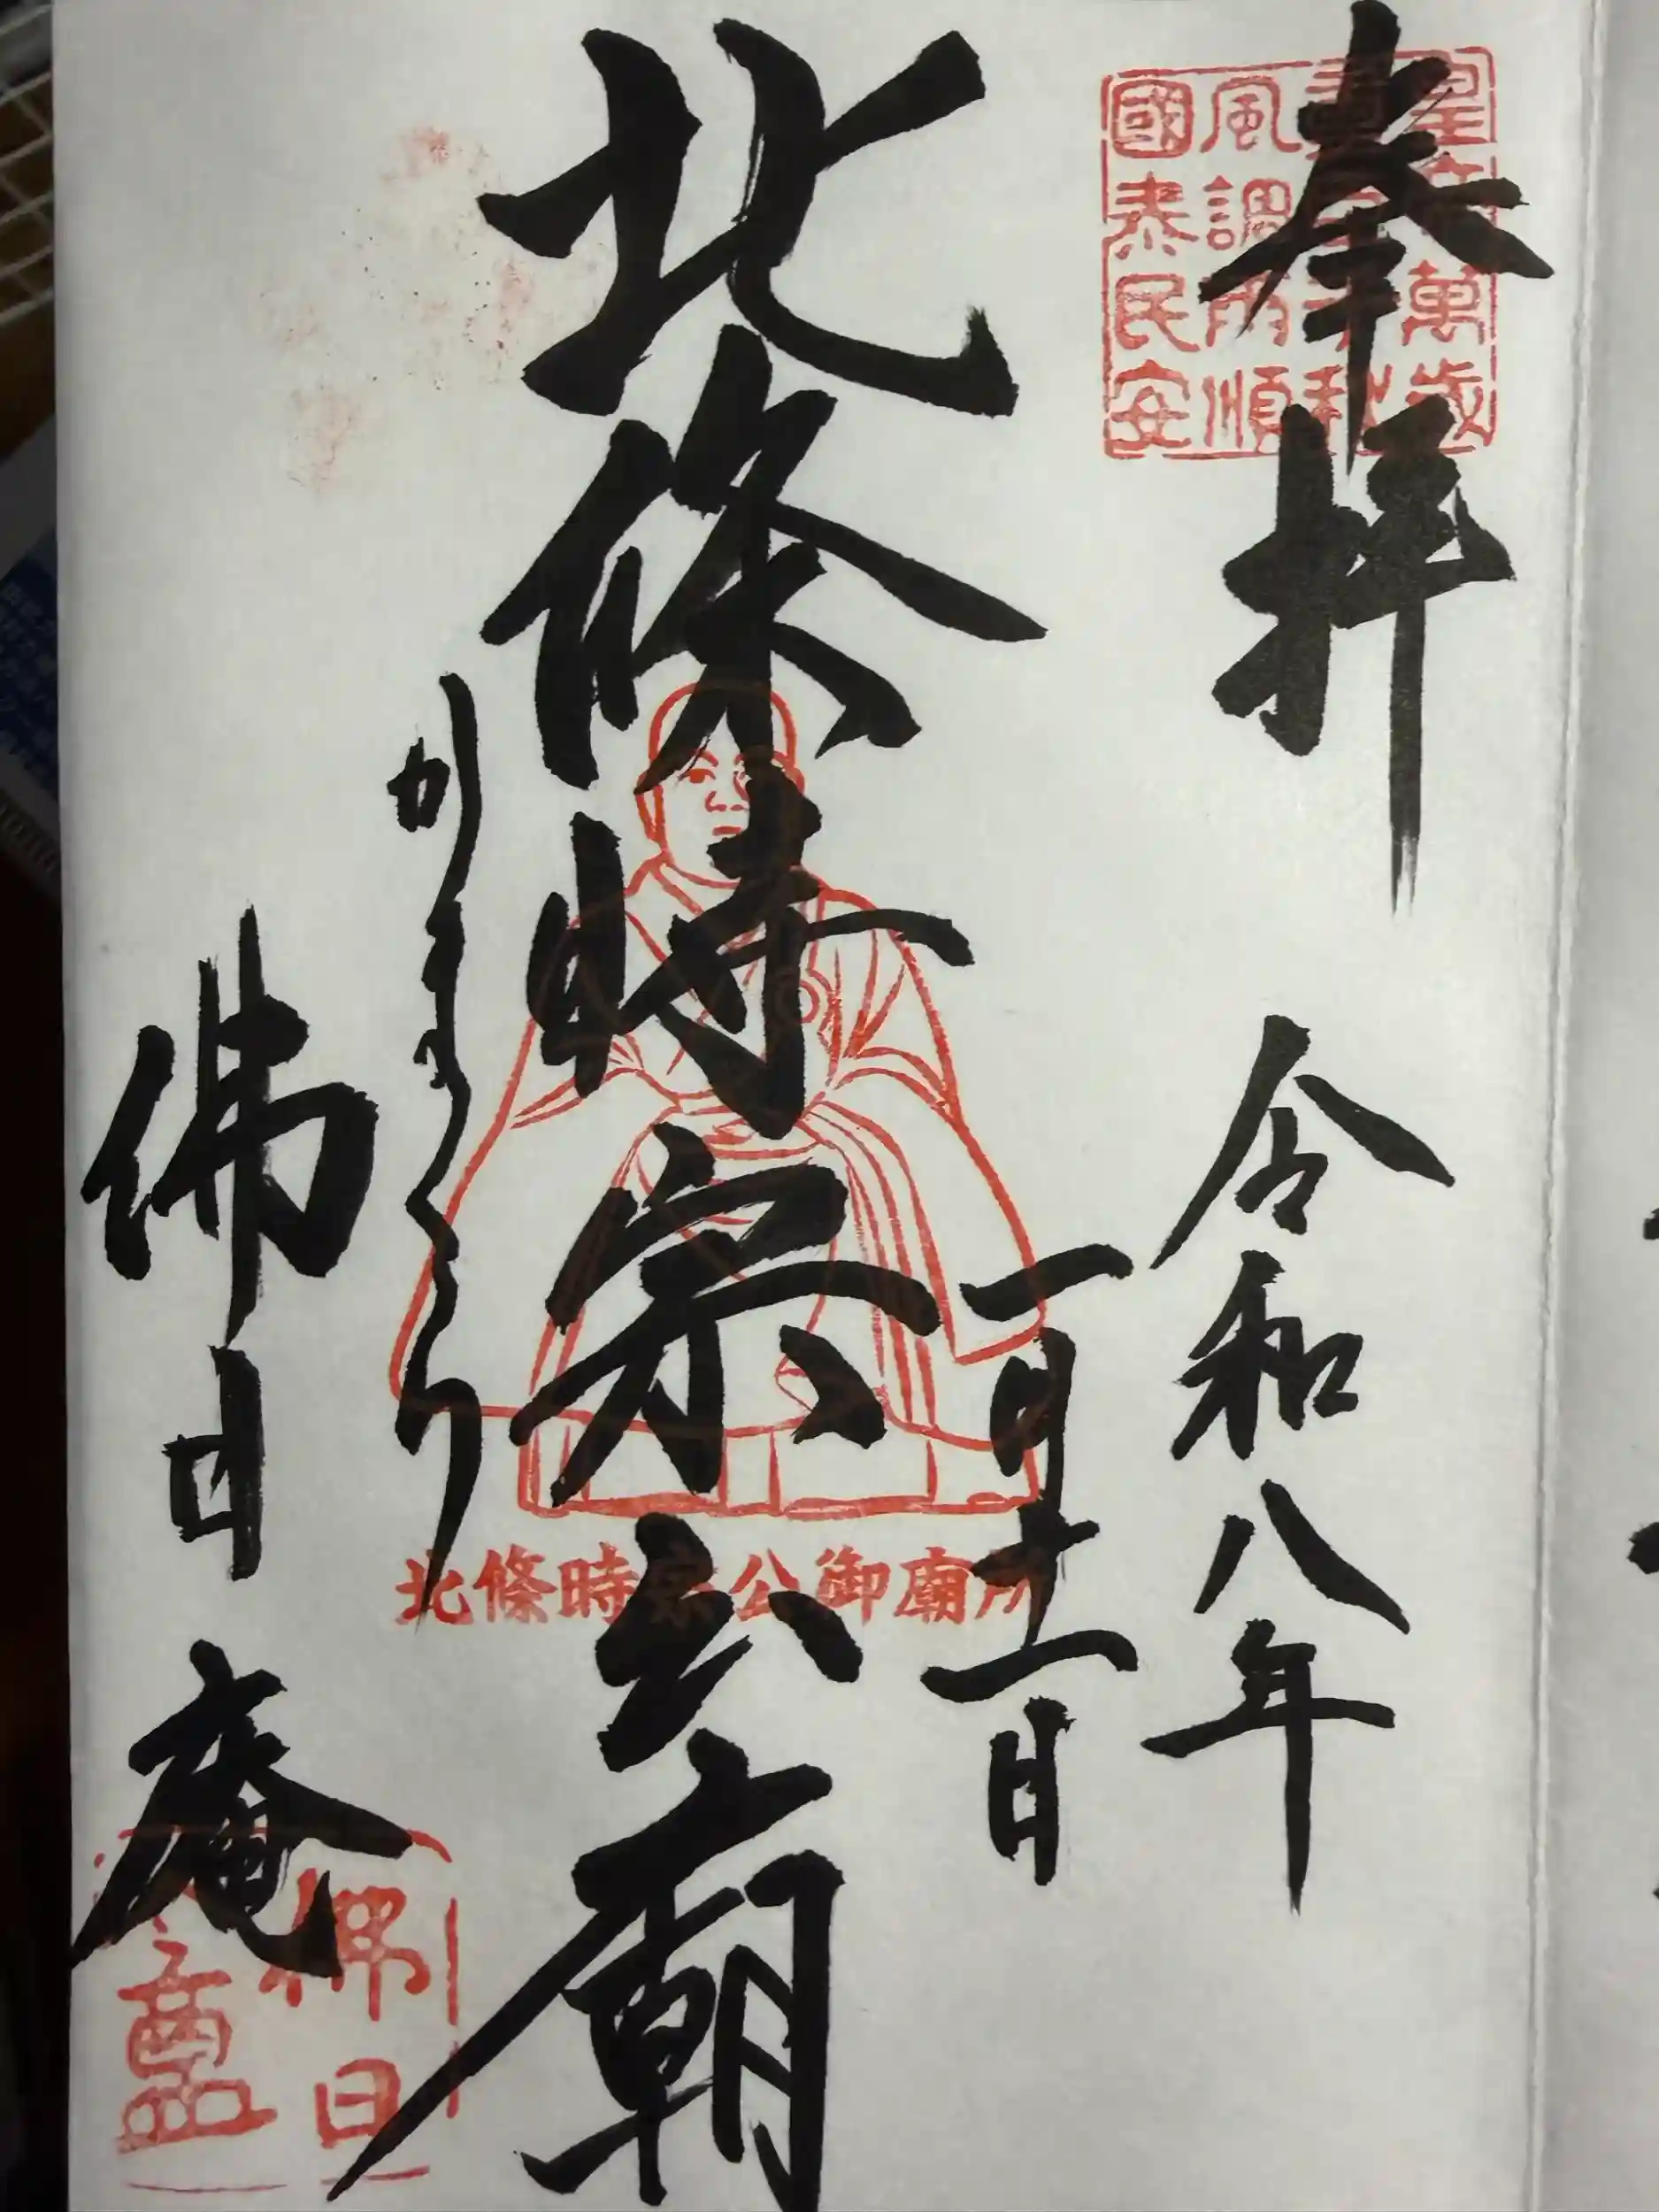 奉拝
皇帝萬歳
風調雨順
國泰民安
令和八年
一月十一日
北條時宗公廟
北條時宗公御廟所
かまくら
佛日庵
佛日
盦